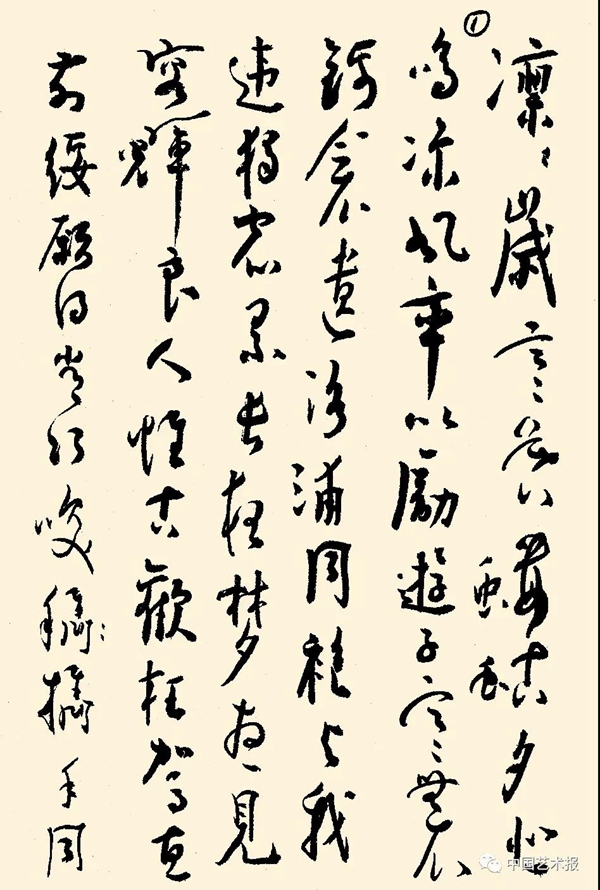 ①
凛〻歲云暮螻蛄夕悲
鳴涼風率以勵遊子寒無衣
錦衾遺洛浦同袍与我
違獨宿累長梦想見
容輝良人惟古歡枉駕惠
前綏願得常巧咲攜手同
中国艺术报